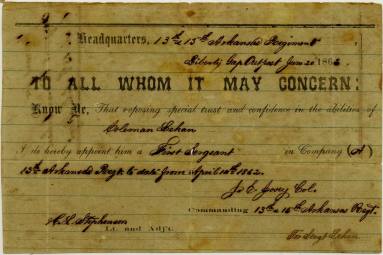 Headquarters, 13th & 15th Arkansas Regiment
Liberty Gap Outpost June 20 186
TO ALL WHOM IT MAY CONCERN:
Know Ye, That reposing special trust and confidence in the abilities of
Coleman
I do hereby appoint him a First Sergeant in Company (A)
13th Arkansas Regt to date from April 14th 1862.
Jno E Josey Col.
Commanding 13th & 15th Arkansas Regt.
H. L. Stephenson
Lt. and Adj't.
For Sergt